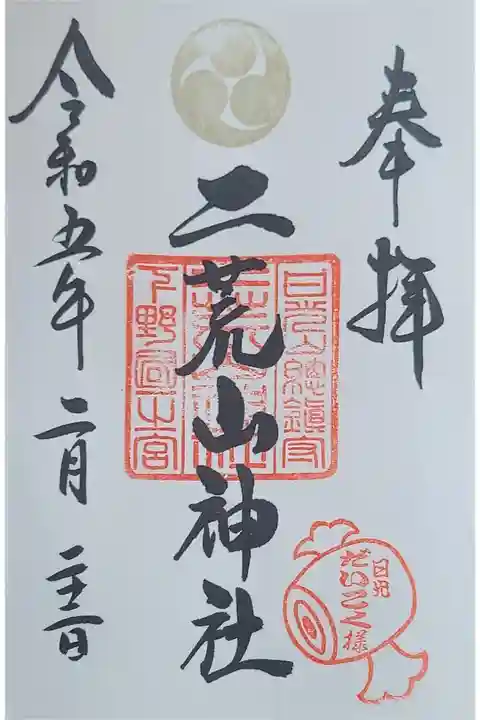 奉拝
日光山總鎮守
二荒山神社
下野國一之宮
令和五年二月二十三日
日光
だいこく様